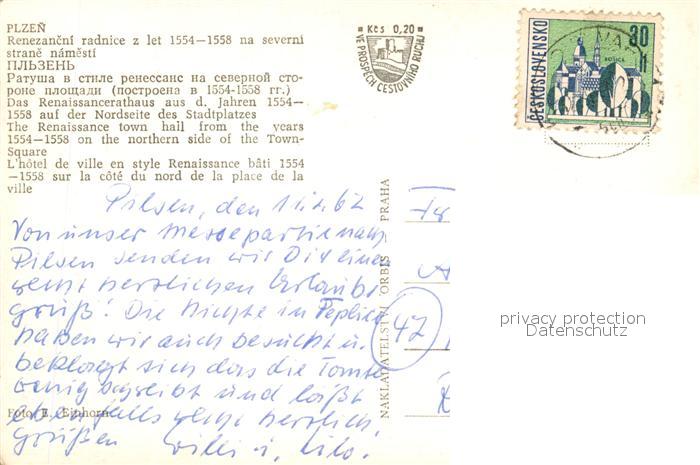 PLZEŇ
Renezanční radnice z let 1554—1558 na severní
straně náměstí
ПЛЬЗЕНЬ
Ратуша в стиле ренессанс на северной сто-
роне площади (построена в 1554-1558 гг.)
Das Renaissancerathaus aus d. Jahren 1554—
1558 auf der Nordseite des Stadtplatzes
The Renaissance town hall from the years
1554—1558 on the northern side of the Town-
Square
L'hôtel de ville en style Renaissance bâti 1554
—1558 sur la côté du nord de la place de la
ville
Kčs 0,20
VE PROSPĚCH CESTOVNÍHO RUCHU
ČESKOSLOVENSKO
30 h
KOŠICE
Pilsen, den
Von unser Messepartie nach
Pilsen senden wir Dir einen
recht herzlichen Urlaubs
gruß! Die Nichte in Teplice
haben wir auch besucht u.
beklagt sich das die Tante
wenig schreibt und läßt
ebenfalls recht herzlich
grüßen Willi u. Lilo.
Foto: E. Einhorn
NAKLADATELSTVÍ ORBIS PRAHA
42
privacy protection
Datenschutz